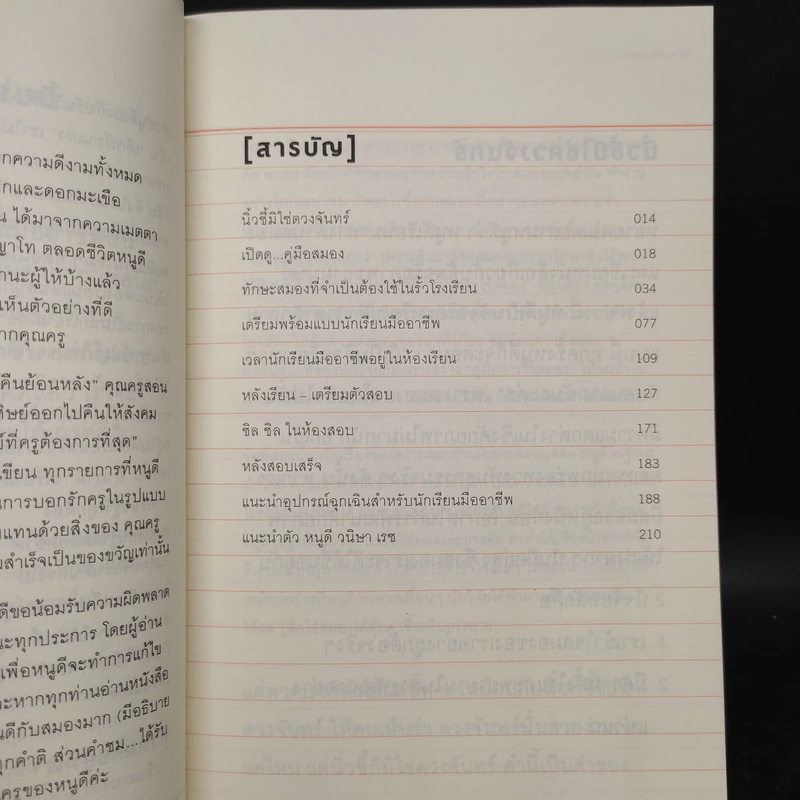 กความดีงามทั้งหมด
กและดอกมะเขือ
ได้มาจากความเมตตา
ญาโท ตลอดชีวิตหนูดี
านะผู้ให้บ้างแล้ว
เห็นตัวอย่างที่ดี
ากคุณครู
คืนย้อนหลัง” คุณครูสอน
ทิษย์ออกไปคืนให้สังคม
ย์ที่ครูต้องการที่สุด”
เขียน ทุกรายการที่หนูดี
นการบอกรักครูในรูปแบบ
บแทนด้วยสิ่งของ คุณครู
มสำเร็จเป็นของขวัญเท่านั้น
ดีขอน้อมรับความผิดพลาด
นะทุกประการ โดยผู้อ่าน
เพื่อหนูดีจะทำการแก้ไข
ะหากทุกท่านอ่านหนังสือ
นดีกับสมองมาก (มีอธิบาย
ทุกคำติ ส่วนคำชม...ได้รับ
ครูของหนูดีค่ะ
[สารบัญ]
นิ้วชี้มิใช่ดวงจันทร์ 014
เปิดดู...คู่มือสมอง 018
ทักษะสมองที่จำเป็นต้องใช้ในรั้วโรงเรียน 034
เตรียมพร้อมแบบนักเรียนมืออาชีพ 077
เวลานักเรียนมืออาชีพอยู่ในห้องเรียน 109
หลังเรียน – เตรียมตัวสอบ 127
ชิล ชิล ในห้องสอบ 171
หลังสอบเสร็จ 183
แนะนำอุปกรณ์ฉุกเฉินสำหรับนักเรียนมืออาชีพ 188
แนะนำตัว หนูดี วนิษา เรซ 210